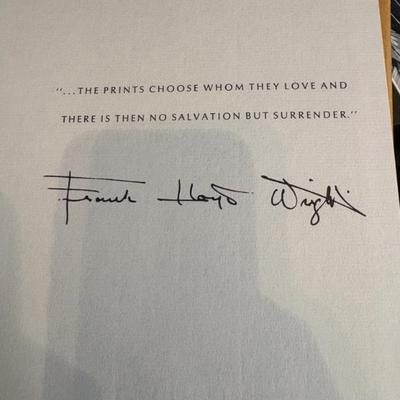 "...THE PRINTS CHOOSE WHOM THEY LOVE AND
THERE IS THEN NO SALVATION BUT SURRENDER."
Frank Lloyd Wright